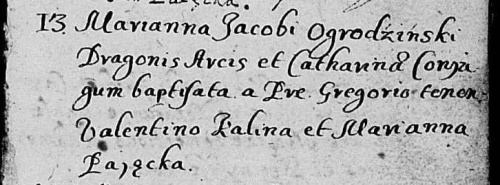 13 Marianna Jacobi Ogrodziński
Dragonis Arcis et Catharinæ Conju
gum baptisata a Pre. Gregorio tenen.
Valentino Kalina et Marianna
Pająęcka.